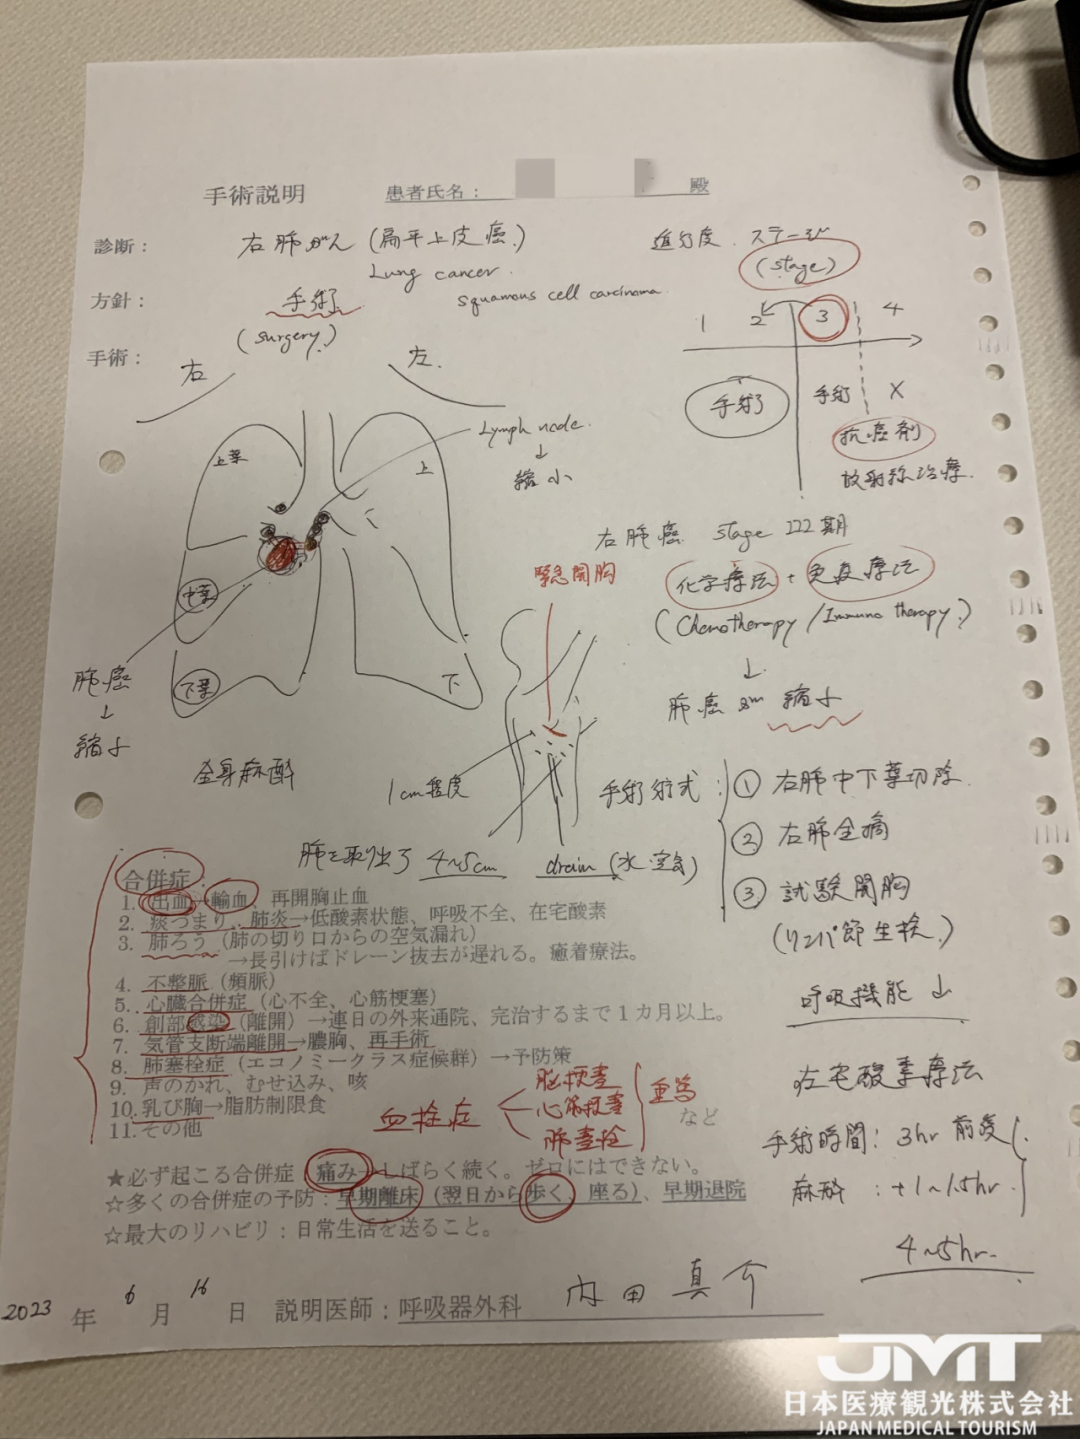 手術説明 患者氏名： 殿
診断： 右肺がん (扁平上皮癌)
Lung cancer.
squamous cell carcinoma
進行度. ステージ
(stage)
方針： 手術
(surgery)
1 2 3 4
手術 手術 X
抗癌剤
放射線治療.
手術：
右 左.
Lymph node.
↓
縮小
上葉 上
中葉
下葉 下
肺癌
↓
縮小
全身麻酔
右肺癌 stage III期
化学療法 + 免疫療法
(Chemotherapy / Immunotherapy)
↓
肺癌 縮小
緊急開胸
1cm程度
肺を取り出す 4~5cm drain (水・空気)
手術術式：① 右肺中下葉切除.
② 右肺全摘
③ 試験開胸
(リンパ節生検)
呼吸機能 ↓
在宅酸素療法
手術時間： 3hr 前後
麻酔 ： +1~1.5hr.
4~5hr.
合併症：
1. 出血→輸血、再開胸止血
2. 痰づまり、肺炎→低酸素状態、呼吸不全、在宅酸素
3. 肺ろう（肺の切り口からの空気漏れ）
→長引けばドレーン抜去が遅れる。癒着療法。
4. 不整脈（頻脈）
5. 心臓合併症（心不全、心筋梗塞）
6. 創部感染（離開）→連日の外来通院、完治するまで１カ月以上。
7. 気管支断端離開→膿胸、再手術
8. 肺塞栓症（エコノミークラス症候群）→予防策
9. 声のかれ、むせ込み、咳
10. 乳び胸→脂肪制限食
11. その他 など
血栓症 脳梗塞
心筋梗塞
肺塞栓
重篤
★必ず起こる合併症 痛み→しばらく続く。ゼロにはできない。
☆多くの合併症の予防：早期離床（翌日から歩く、座る）、早期退院
☆最大のリハビリ：日常生活を送ること。
2023 年 6 月 16 日 説明医師：呼吸器外科 内田 真介
JMT
日本医療観光株式会社
JAPAN MEDICAL TOURISM